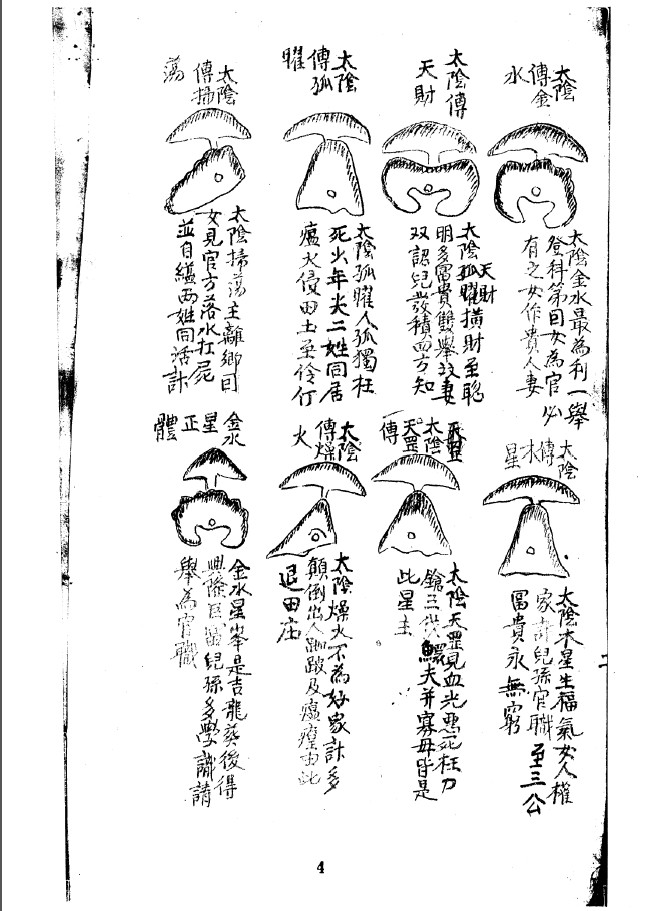 太陰
傳金
水
太陰金水最為利一舉
登科第回女為官必
有之女作貴人妻
太陰傳
天財
天財
太陰孤曜橫財至聡
明多富貴雙舉玟妻
双認兒發積四方知
太陰
傳孤
曜
太陰孤曜人孤獨枉
死出年尖二姓同居
瘟火侵田土至伶仃
太陰
傳掃
蕩
太陰掃蕩主離鄉回
女見官方落水扛屍
並自縊两姓同活計
太陰
傳木
星
太陰木星生福氣女人權
家許兒孫官職至三公
冨貴永無窮
太陰
天罡
傳
太陰天罡見血光惡死枉刀
鎗三代鰥夫并寡母皆是
此星主
太陰
傳燥
火
太陰燥火不為好家計多
顛倒出人跏跛及瘟瘽由此
退田庄
金水
星
正
體
金水星峯是吉龍葵後得
興隆巨富兒孫多學識請
舉為官職
二
4